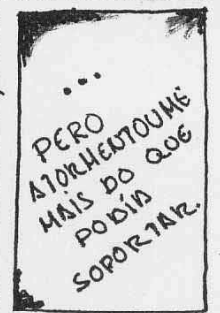 ...
PERO
ATORMENTOUME
MAIS DO QUE
PODÍA
SOPORTAR.